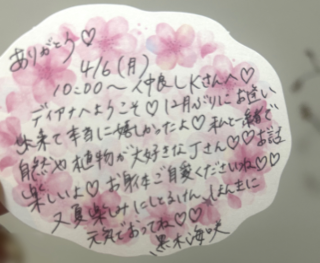 ありがとう♡
4/6(月)
10:00〜仲良しKさんへ♡
ディアナへようこそ♡12月ぶりにお会い
出来て本当に嬉しかったよ♡私と一緒で
自然や植物が大好きなJさん♡♡お話
楽しいよ♡お身体ご自愛くださいね♡♡
又真楽しみにしてるけん、ほんまに
元気であってね♡♡